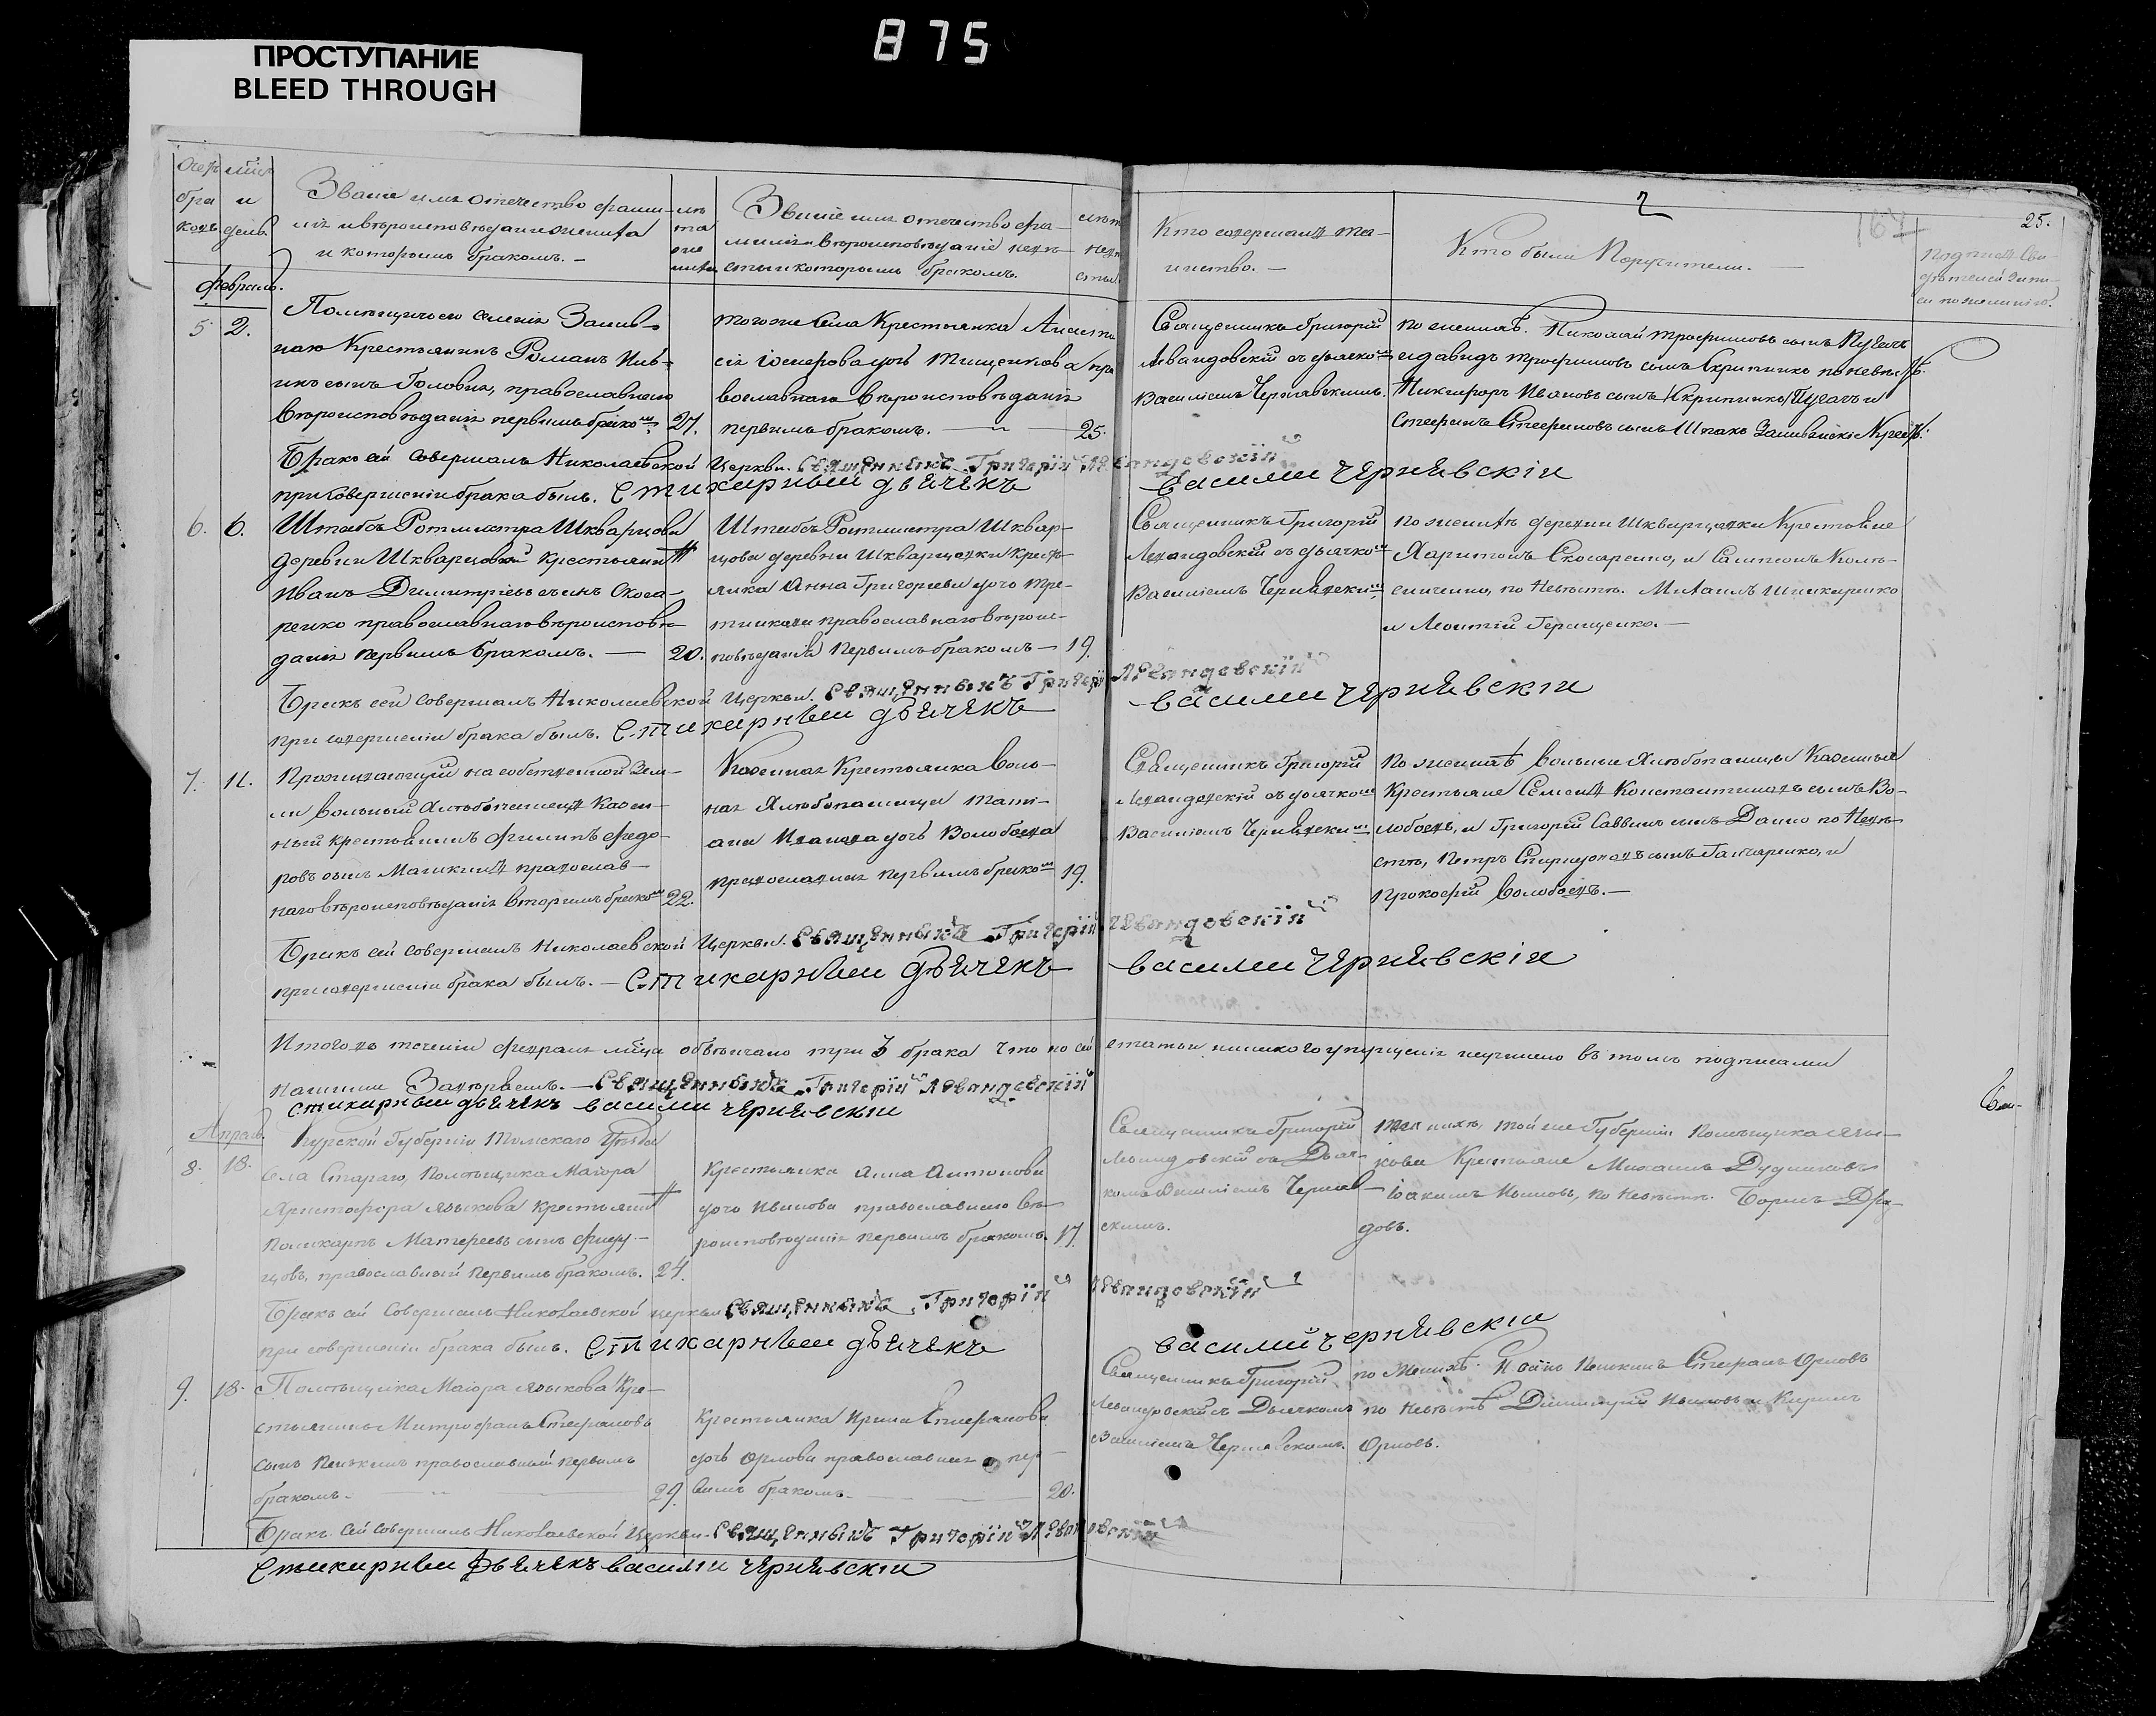 875
ПРОСТУПАНИЕ
BLEED THROUGH
2
167
25.
Звание имя отечество фами-
лия и вѣроисповѣдание жениха
и которымъ бракомъ. -
Звание имя отечество фа-
милия и вѣроисповѣдание невѣ-
сты и которымъ бракомъ.
Кто совершалъ та-
инство. -
Кто были Поручители. -
Февраль.
5. 2.
Помѣщичьего селения Залив-
наго Крестьянинъ Романъ
сынъ Головка, православнаго
вѣроисповѣдания первымъ бракомъ 27.
того же Села Крестьянка Анаста
сия Іосифова дочь Тищенкова пра
вославнаго вѣроисповѣдания
первымъ бракомъ. - 25.
Священникъ Григорий
Левандовский съ дьячкомъ
Василиемъ Чернявскимъ.
по женихѣ. Николай Трофимовъ сынъ Пугачъ
и давидъ Трофимовъ сынъ Скрипникъ по невѣстѣ.
Никифоръ Ивановъ сынъ Пугачъ и
Стефанъ Стефановъ сынъ Шпакъ
Бракъ сей совершалъ Николаевской Церкви. Священникъ Григорій Левандовскій
при совершении брака былъ. Стихарный дьячекъ василии чернявскіи
6. 6.
Штабсъ Ротмистра Шкварцова
деревни Шкварцовой крестьянинъ
Иванъ Димитриевъ сынъ Скоса-
ренко православнаго вѣроисповѣ-
дания первымъ бракомъ. - 20.
Штабсъ Ротмистра Шквар-
цова деревни Шкварцовки крест-
янка Анна Григориева дочь
православнаго вѣроис-
повѣдания первымъ бракомъ - 19.
Священникъ Григорий
Левандовский съ дьячкомъ
Василиемъ Чернявским
по женихѣ деревни Шкварцовки Крестьяне
Харитонъ Скосаренко, и Самсонъ
по невѣстѣ. Михаилъ
и Леонтий Геращенко. -
Бракъ сей совершалъ Николаевской Церкви. Священникъ Григорій Левандовскій
при совершении брака былъ. Стихарный дьячекъ василии чернявскіи
7. 11.
Проживающий на собственной Зем-
ли вольный Хлебопашецъ Казен-
ный крестьянинъ Филипъ Федо-
ровъ сынъ православ-
наго вѣроисповѣдания вторымъ бракомъ 22.
Казенная Крестьянка воль-
ная Хлебопашица Тати-
ана Иванова дочь Волобоева
православная первымъ бракомъ 19.
Священникъ Григорий
Левандовский съ дьячкомъ
Василиемъ Чернявским
по женихѣ вольные Хлебопашцы Казенные
Крестьяне Семенъ Константиновъ сынъ Во-
лобоевъ, и Григорий Саввинъ сынъ по Невѣ-
стѣ, Петръ Спиридоновъ сынъ Гончаренко, и
Прокофий Волобоевъ. -
Бракъ сей совершалъ Николаевской Церкви. Священникъ Григорій Левандовскій
при совершении брака былъ. - Стихарный дьячекъ василии чернявскіи
Итого въ течении Февраля мца обвѣнчано три 3 брака что по сей статьи никакого упущения неучинено въ томъ подписами
нашими Завѣряемъ. - Священникъ Григорій Левандовскій
стихарный дьячекъ василии чернявскіи
Апрель.
8. 18.
Курской Губернии Тимскаго Уѣзда
Села Стараго, Помѣщика Маіора
Христофора Языкова крестьянинъ
Поликарпъ сынъ
православный первымъ бракомъ. 24.
Крестьянка Анна Антонова
дочь Иванова православнаго вѣ-
роисповѣдания первымъ бракомъ. 17.
Священникъ Григорий
Левандовский съ Дьяч-
комъ Василиемъ Черняв-
скимъ.
той же Губернии Помѣщика Язы-
кова Крестьяне Михаилъ Дудниковъ
Іоакимъ Ивановъ, по Невѣстѣ. Борисъ
Бракъ сей Совершалъ Николаевской церкви Священникъ Григорій Левандовскій
при совершении брака былъ. Стихарный дьячекъ василий чернявскіи
9. 18.
Помѣщика Маіора Языкова Кре-
стьянинъ Митрофанъ Стефановъ
сынъ православный первымъ
бракомъ. - 29.
Крестьянка Ирина
дочь Орлова православная пер-
вымъ бракомъ. - 20.
Священникъ Григорий
Левандовский съ Дьячкомъ
Василиемъ Чернявскимъ.
по Женихѣ. Стефанъ Орловъ
по Невѣстѣ Димитрий Ивановъ и Кирилъ
Орловъ.
Бракъ Сей Совершалъ Николаевской Церкви. Священникъ Григорій
Стихарныи дьячекъ василіи чернявскіи